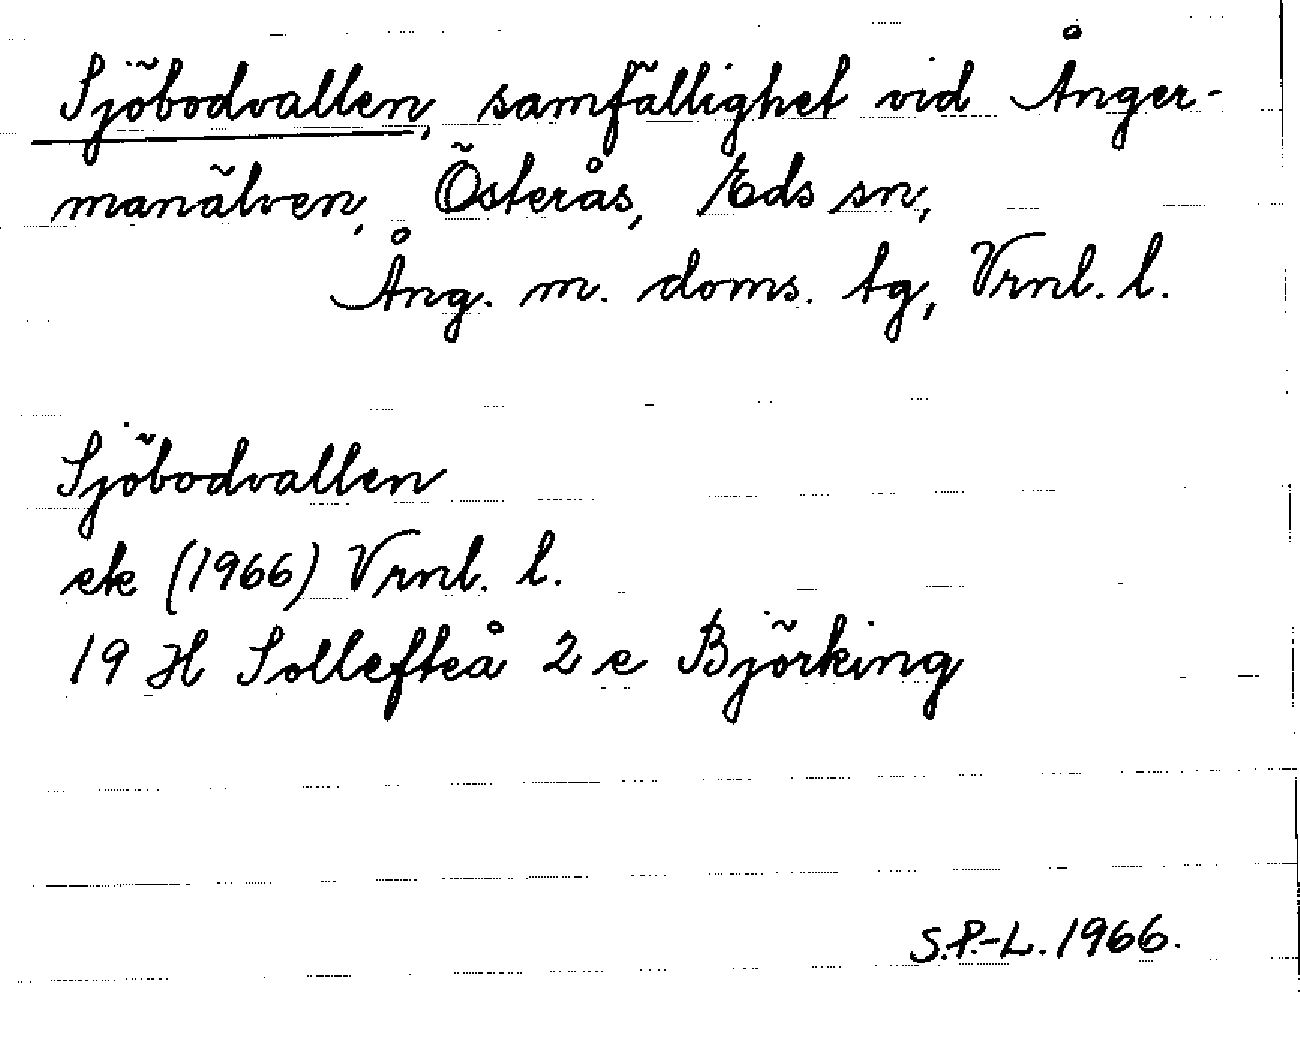 Sjöbodvallen, samfällighet vid Ånger-
manälven, Österås, Eds sn,
Ång. m. doms. tg, Vrnl. l.
Sjöbodvallen
ek (1966) Vrnl. l.
19 H Sollefteå 2 e Björking
S.P.-L. 1966.